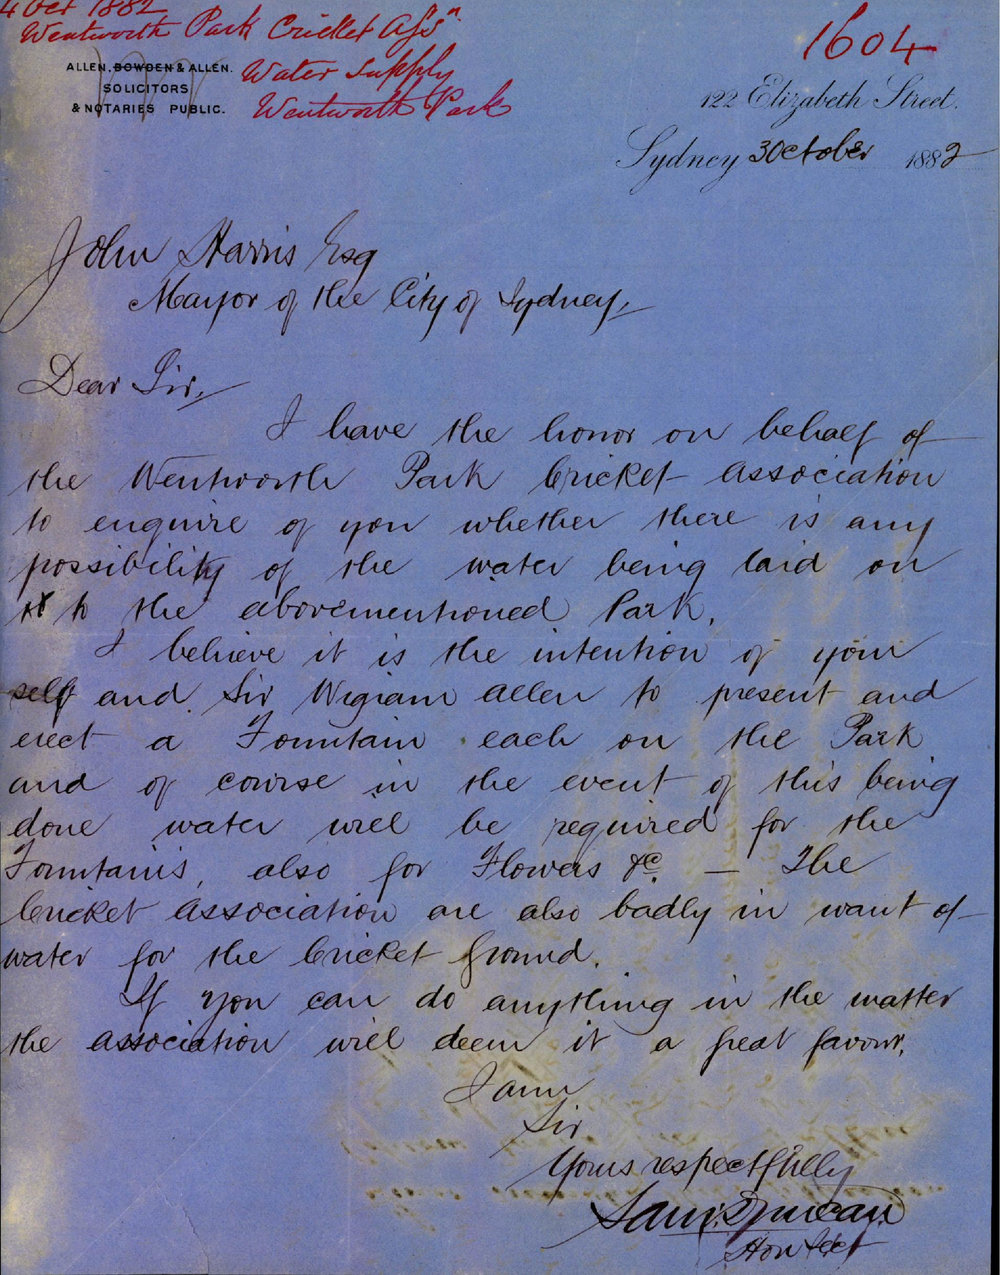 4 Oct 1882
Wentworth Park Cricket Assn.
1604
ALLEN, BOWDEN & ALLEN.
SOLICITORS
& NOTARIES PUBLIC.
Water Supply
Wentworth Park
122 Elizabeth Street.
Sydney 3 October 1882
John Harris Esq
Mayor of the City of Sydney,
Dear Sir,
I have the honor on behalf of
the Wentworth Park Cricket Association
to enquire of you whether there is any
possibility of the water being laid on
to the abovementioned Park.
I believe it is the intention of your
self and Sir Wigram Allen to present and
erect a Fountain each on the Park
and of course in the event of this being
done water will be required for the
Fountains, also for Flowers &c. — The
Cricket Association are also badly in want of
water for the Cricket Ground.
If you can do anything in the matter
the association will deem it a great favour.
I am
Sir
Yours respectfully
Saml. Duncan
Hon Sect